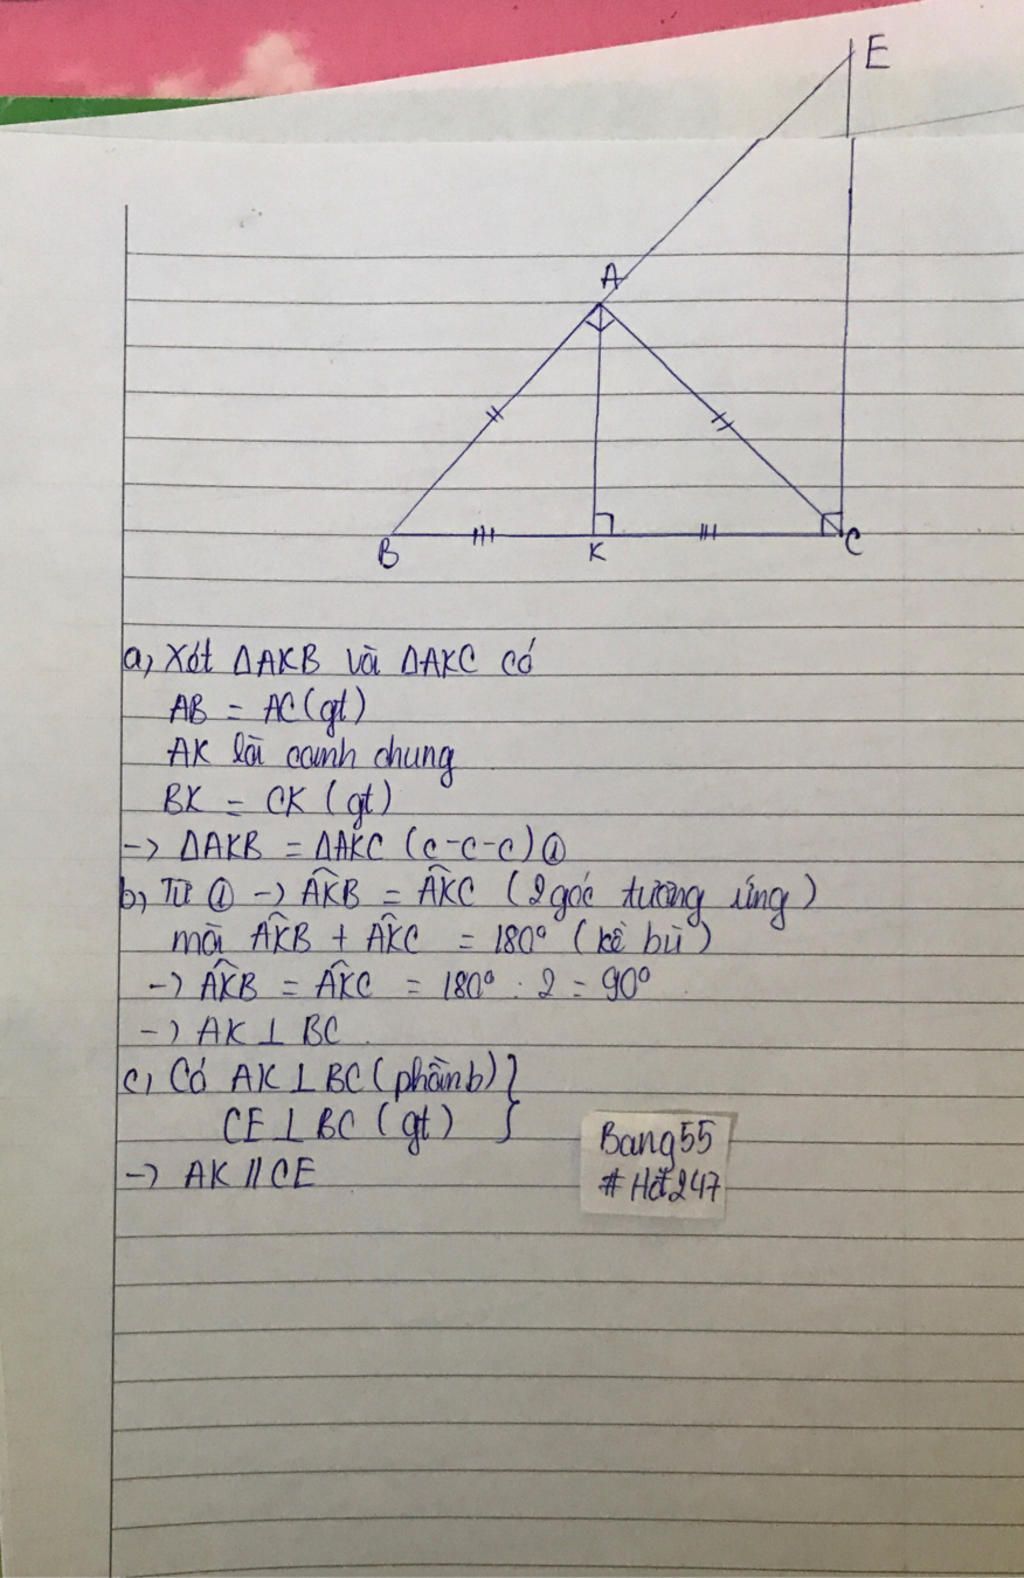 E
A
B
K
C
a, Xét ΔAKB và ΔAKC có
AB = AC (gt)
AK là cạnh chung
BK = CK (gt)
-> ΔAKB = ΔAKC (c-c-c) ①
b, Từ ① -> AK̂B = AK̂C (2 góc tương ứng)
mà AK̂B + AK̂C = 180° (kề bù)
-> AK̂B = AK̂C = 180° : 2 = 90°
-> AK ⊥ BC
c, Có AK ⊥ BC (phần b) }
CE ⊥ BC (gt)
-> AK // CE
Bang55
# Hđ247